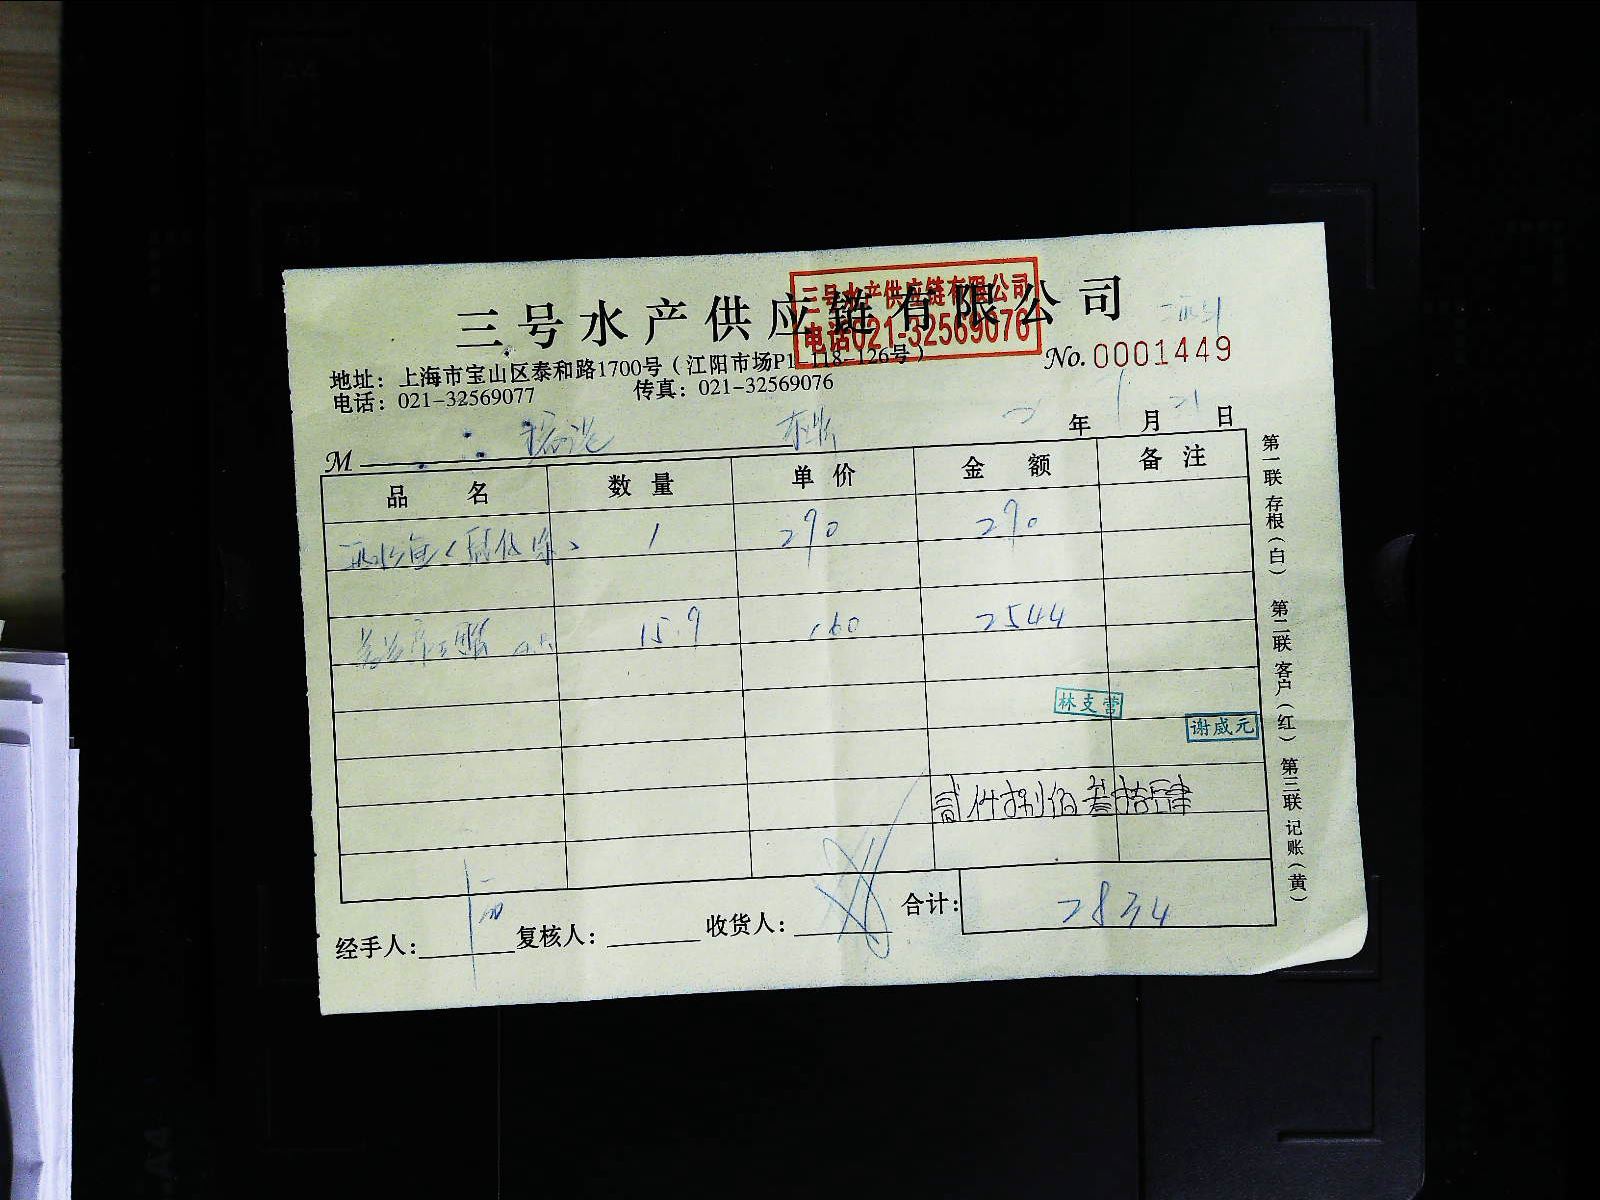 三号水产供应链有限公司
三号水产供应链有限公司
电话021-32569076
No.0001449
地址：上海市宝山区泰和路1700号（江阳市场P1-118-126号）
电话：021-32569077 传真：021-32569076
M 年 7月21日
品名 数量 单价 金额 备注
1 290 290
15.9 160 2544
林支营
谢威元
贰仟捌佰叁拾肆
合计：2834
经手人： 复核人： 收货人：
第一联 存根（白） 第二联 客户（红） 第三联 记账（黄）